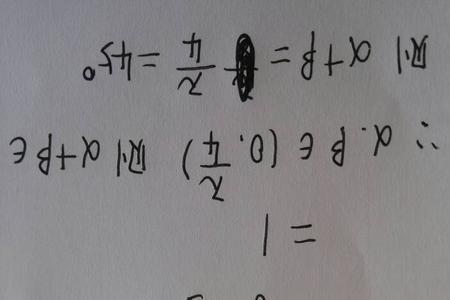 = 1
∴ α.β∈(0.π/4) 则 α+β∈
则 α+β=π/4=45°